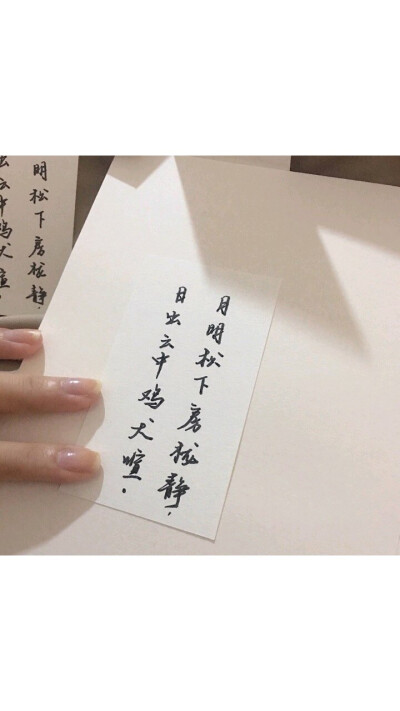 月明松下房栊静，
日出云中鸡犬喧。
明松下房栊静，
出云中鸡犬喧。